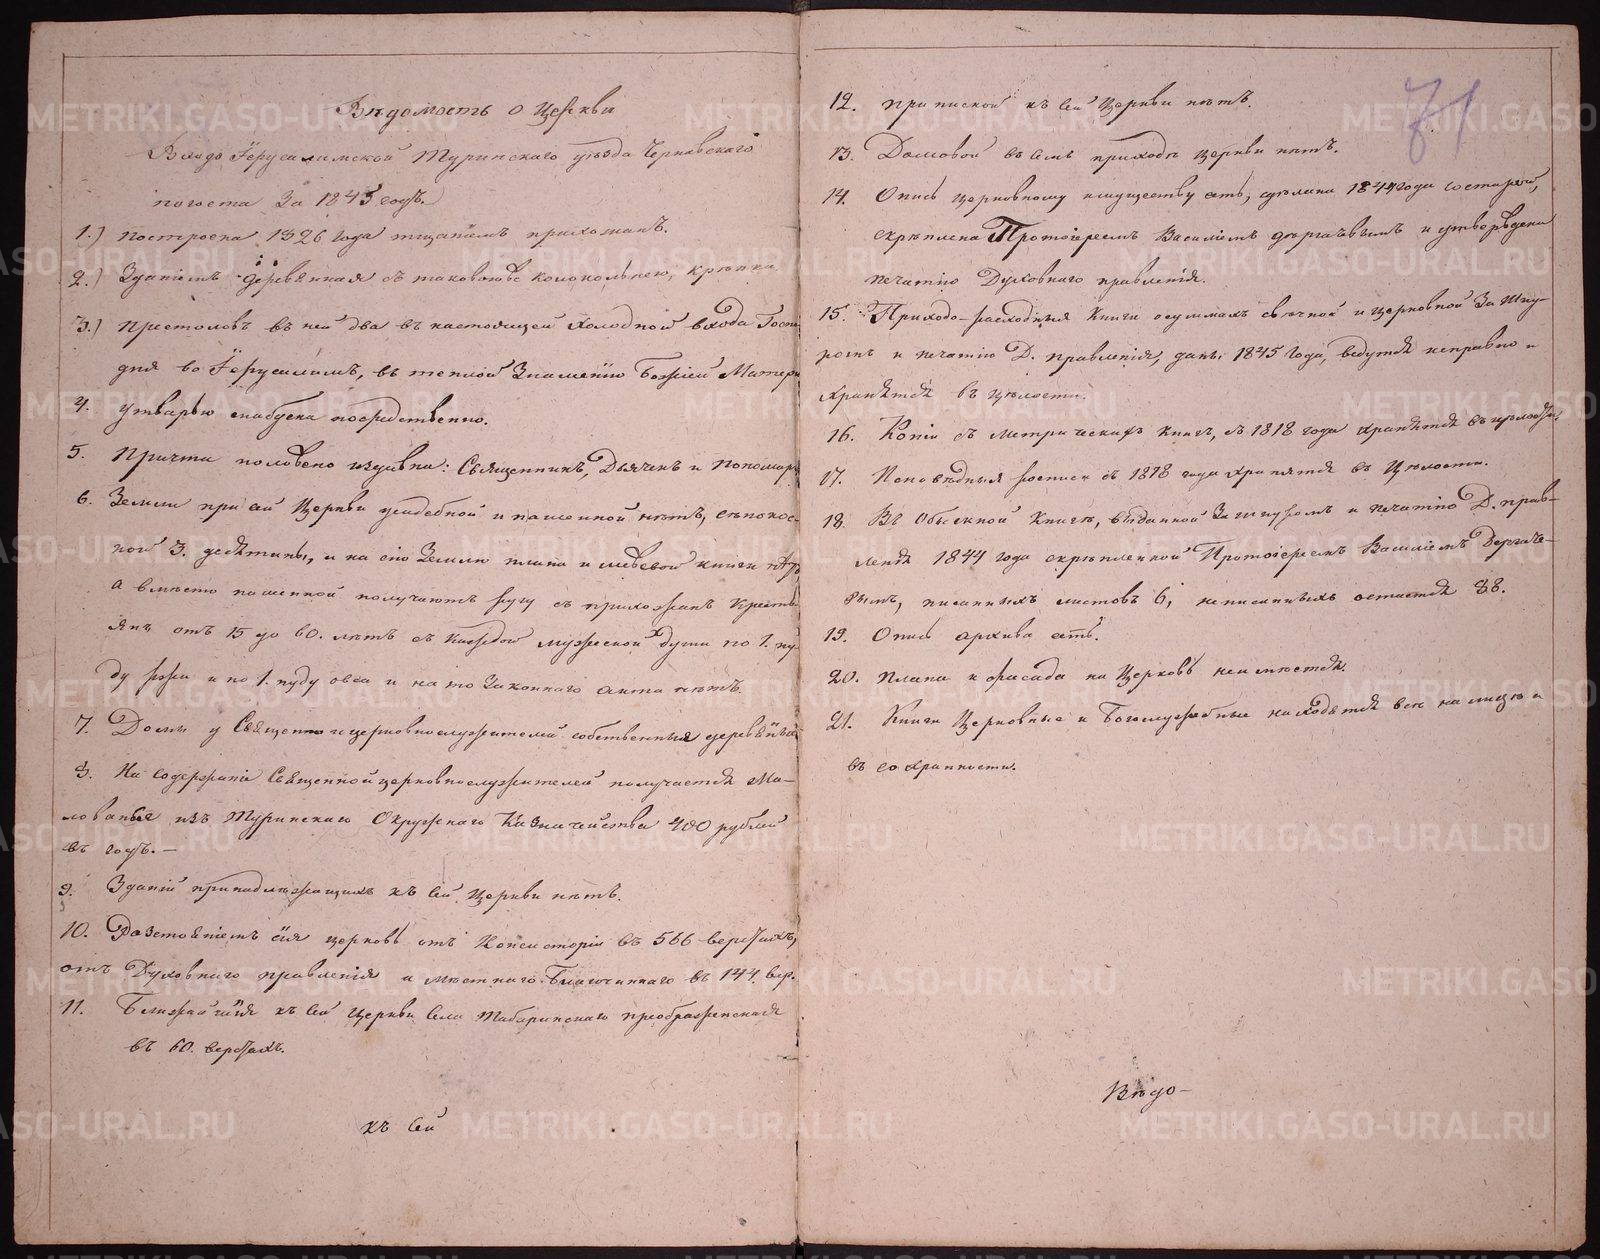 Вѣдомость о Церкви
Входо Іерусалимской Туринскаго уѣзда Чернавскаго
погоста За 1845 годъ.
1.) Построена 1826 года тщаніемъ прихожанъ.
2.) Зданіемъ деревянная съ таковоюже колокольнею, крѣпка.
3.) Престоловъ въ ней два въ настоящей холодной входа Госпо-
дня во Іерусалимъ, въ теплой Знаменію Божіей Матери
4. Утварью снабдена посредственно.
5. Причта положено издавна: Священникъ, Дьячекъ и Пономарь
6. Земли при сей Церкви усадебной и пашенной нѣтъ, сѣнокос-
ной 3. десятины, и на сію Землю плана и межевой книги нѣтъ,
а вмѣсто пашенной получаютъ ругу съ прихожанъ Кресть-
янъ отъ 15 до 60. лѣтъ съ каждой мужеской души по 1. пу-
ду ржи и по 1. пуду овса и на то Законнаго акта нѣтъ.
7. Домы у Священно и церковнослужителей собственныя деревянныя
8. На содержаніе Священноицерковнослужителей получается жа-
лованья изъ Туринскаго Окружнаго Казначейства 400 рублей
въ годъ. —
9. Зданій принадлежащихъ къ сей Церкви нѣтъ.
10. Разстояніемъ сія церковь отъ Консисторіи въ 566 верстахъ,
отъ Духовнаго правленія и мѣстнаго Благочиннаго въ 144 вер.
11. Ближайшая къ сей Церкви Села Табаринскаго преображенская
въ 60. верстахъ.
къ сей
71
12. приписной къ сей Церкви нѣтъ.
13. Домовой въ семъ приходѣ Церкви нѣтъ.
14. Опись церковному имуществу есть, сдѣлана 1844 года
скрѣплена Протоіереемъ Василіемъ и утверждена
печатію Духовнаго правленія.
15. Приходо-расходныя Книги о суммахъ свѣчной и церковной За шну-
ромъ и печатію Д. правленія, даны 1845 года, ведутся исправно и
хранятся въ цѣлости.
16. Копіи съ метрическихъ книгъ, съ 1818 года хранятся въ цѣлости.
17. Исповѣдныя росписи съ 1818 года хранятся въ Цѣлости.
18. Въ Обыскной Книгѣ, выданной За шнуромъ и печатію Д. прав-
ленія 1844 года скрѣпленной Протоіереемъ Василіемъ
писанныхъ листовъ 6, неписанныхъ остается 88.
19. Опись архива есть.
20. Плана и фасада на Церковь неимѣется.
21. Книги Церковные и Богослужебные находятся всѣ на лицѣ и
въ сохранности.
Вѣдо-
METRIKI.GASO-URAL.RU